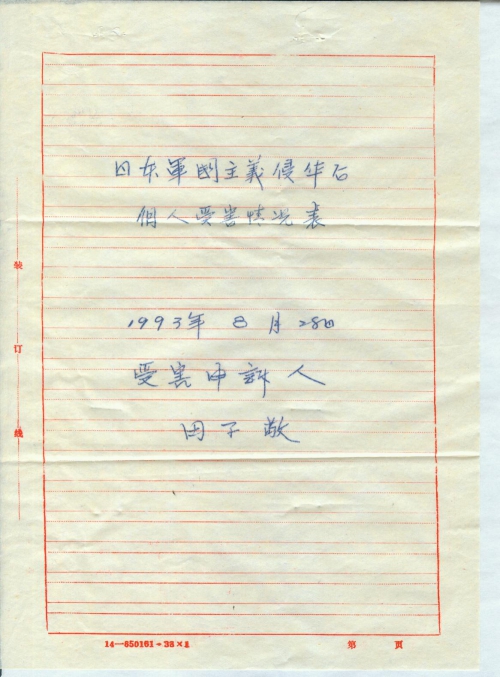 日本軍國主義侵华后
個人受害情况表
1993年 8 月 28日
受害申訴人
田子敬
装
订
线
14—650161·36×2
第 页